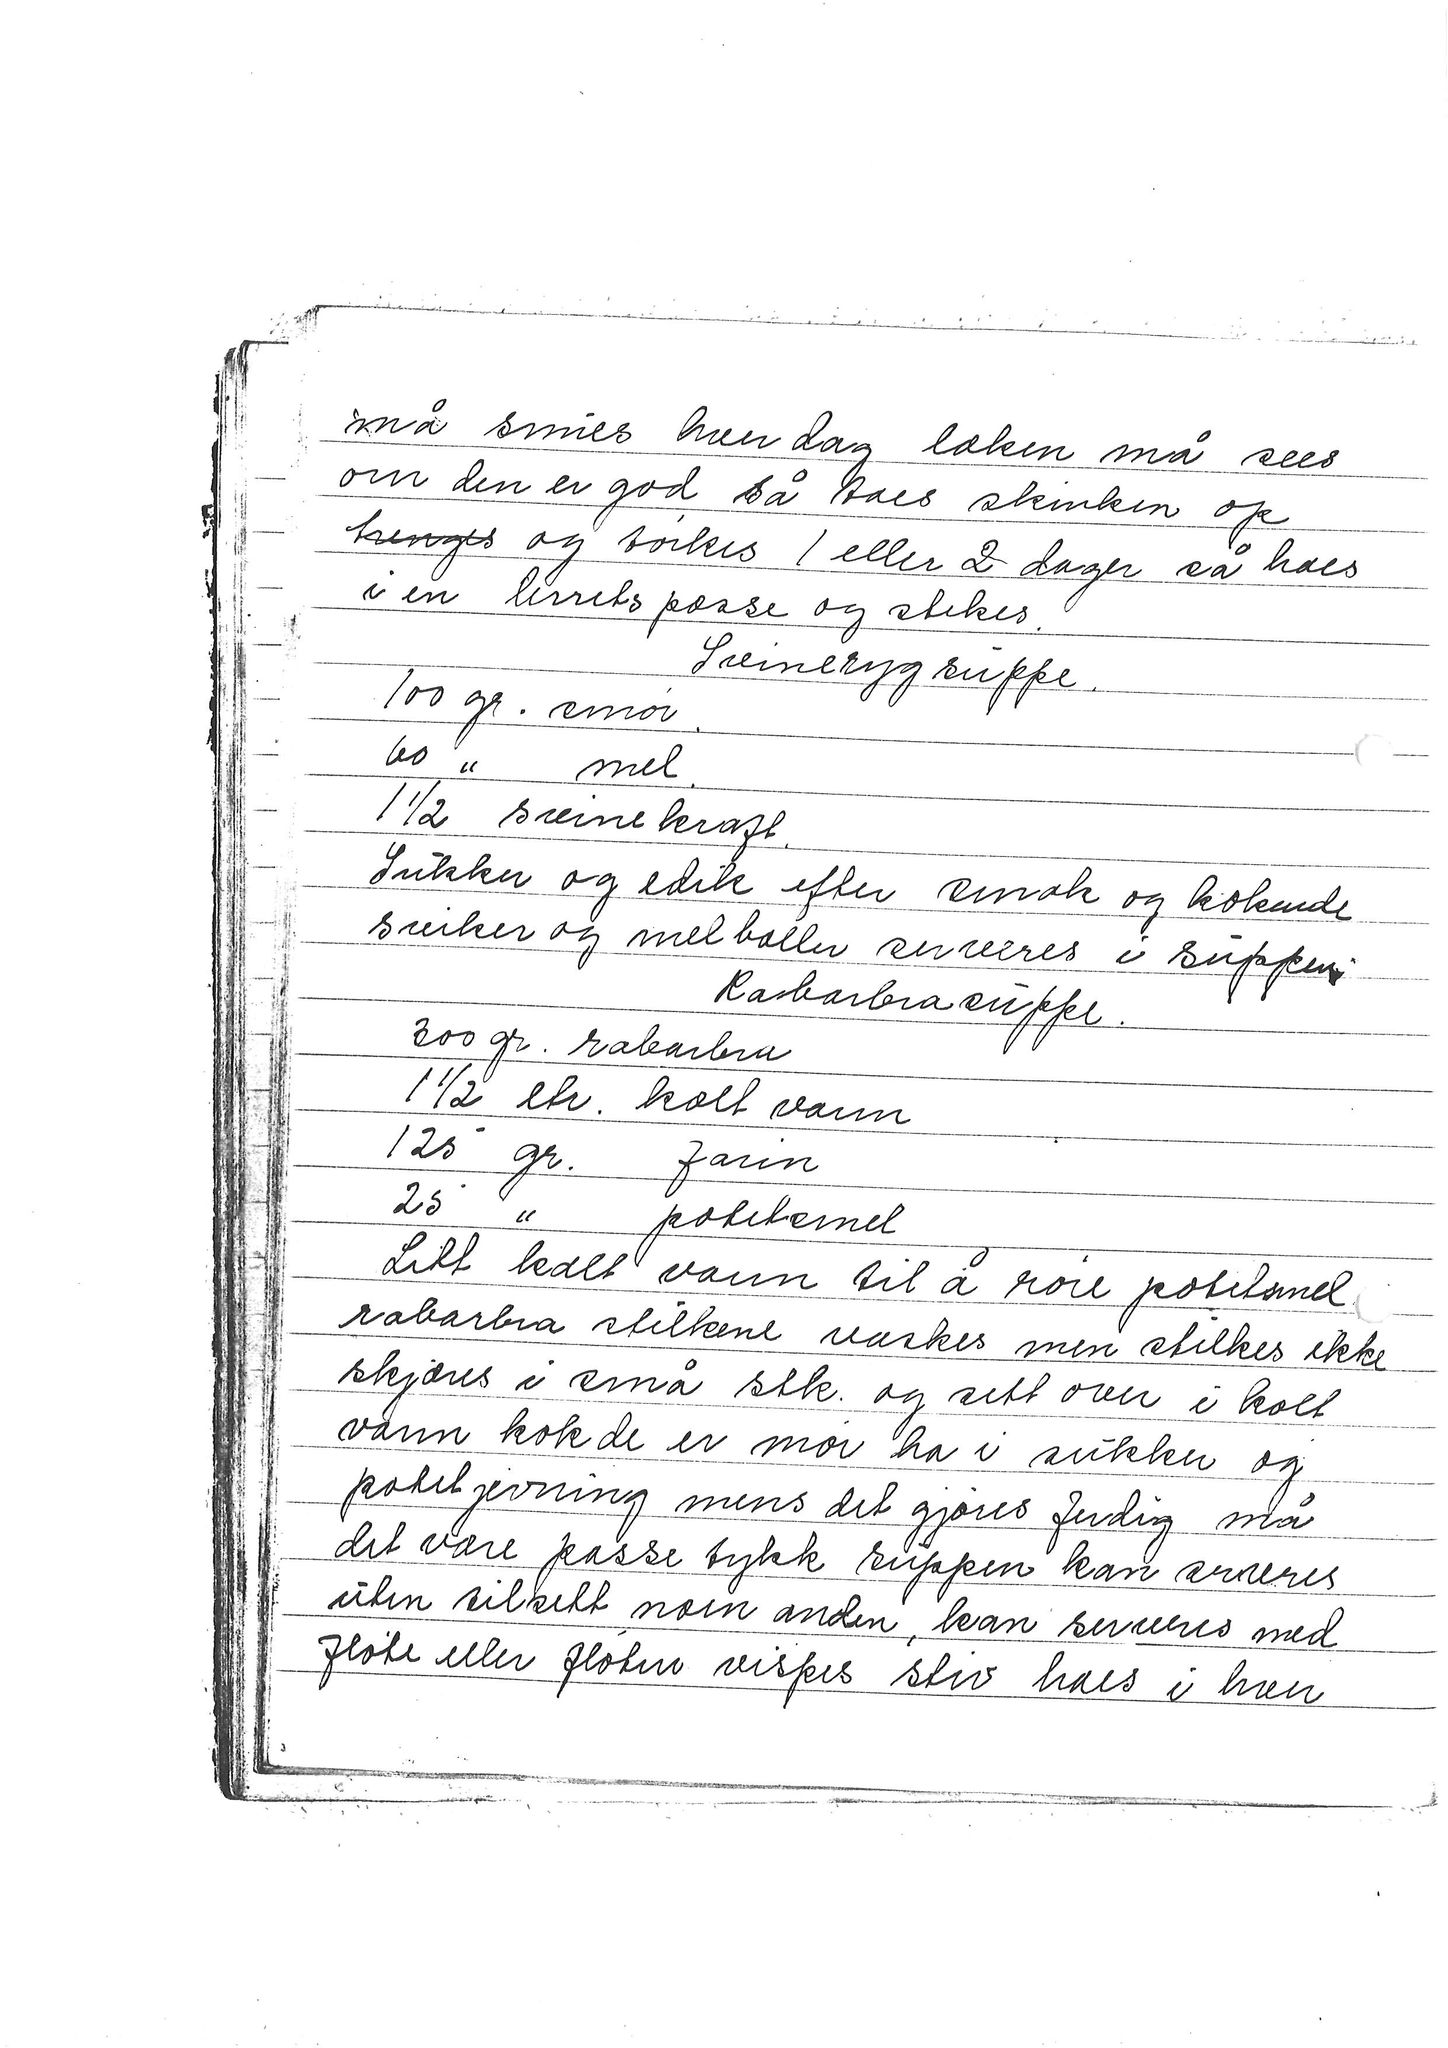 må snües hver dag laken må sees
om den er god så taes skinken op
henges og törkes 1 eller 2 dager så haes
i en lerrets posse og stekes.
Svineryg suppe.
100 gr. smör.
60 " mel.
1 1/2 svinekraft.
Sukker og edik efter smak og kokende
svisker og mel boller serveres i suppen.
Rabarbra suppe.
300 gr. rabarbra
1 1/2 ltr. kalt vann
125 gr. farin
25 " potetsmel
Litt kalt vann til å röre potetsmel.
rabarbra stilkene vaskes men stilkes ikke
skjæres i små stk. og sett over i kolt
vann kok de er mör ha i sukker og
potet jevning mens det gjöres ferdig må
det være passe tykk suppen kan serveres
uten tilsett noen anden, kan serveres med
flöte eller flöten vispes stiv haes i hver